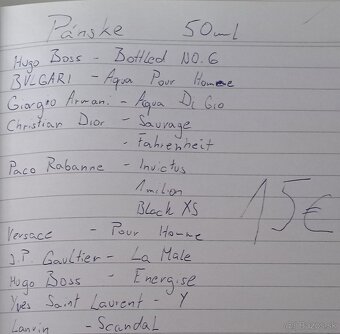 Pánske 50ml
Hugo Boss - Bottled NO.6
BVLGARI - Aqua Pour Homme
Giorgio Armani - Aqua Di Gio
Christian Dior - Sauvage
- Fahrenheit
Paco Rabanne - Invictus
1 milion
Black XS
15€
Versace - Pour Homme
J.P. Gaultier - La Male
Hugo Boss - Energise
Yves Saint Laurent - Y
Lanvin - Scandal